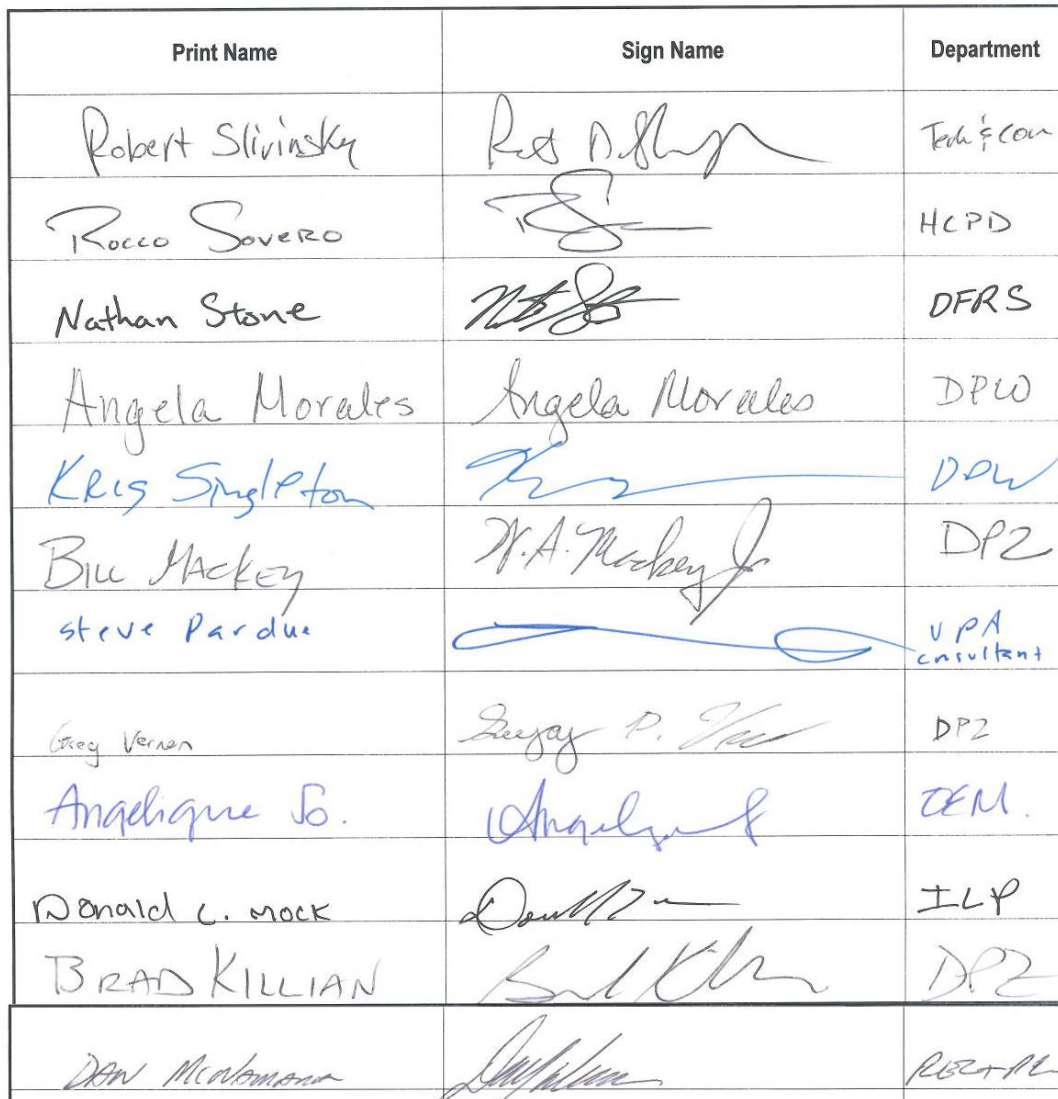 Print Name Sign Name Department
Robert Slivinsky Tech & Com
Rocco Sovero HCPD
Nathan Stone DFRS
Angela Morales Angela Morales DPW
Kris Singleton DPW
Bill Mackey W.A. Mackey Jr DPZ
steve Pardue VPA
consultant
Greg Vernon DPZ
Angelique So. OEM.
Donald L. Mock ILP
BRAD KILLIAN DPZ
DAN McNamara